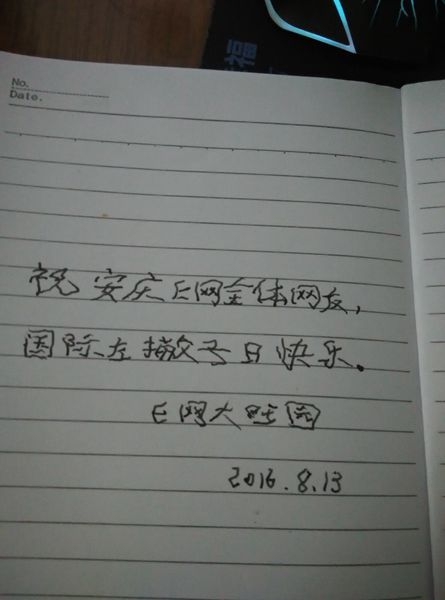 福
No.
Date.
祝安庆E网全体网友,
国际左撇子日快乐。
E网大旺园
2016.8.13